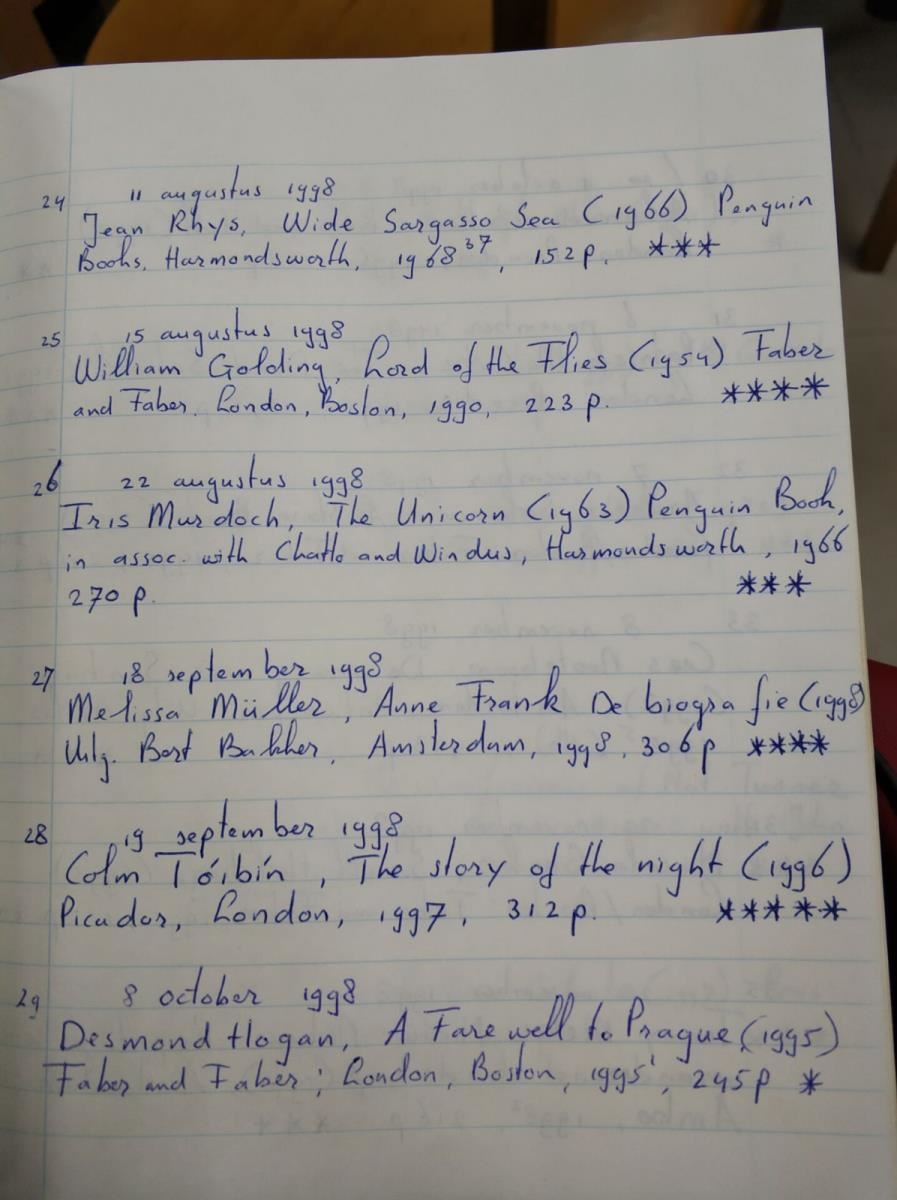 24 11 augustus 1998
Jean Rhys, Wide Sargasso Sea (1966) Penguin
Books, Harmondsworth, 1968³⁷, 152 p. ***
25 15 augustus 1998
William Golding, Lord of the Flies (1954) Faber
and Faber, London, Boston, 1990, 223 p. ****
26 22 augustus 1998
Iris Murdoch, The Unicorn (1963) Penguin Book,
in assoc. with Chatto and Windus, Harmondsworth, 1966
270 p. ***
27 18 september 1998
Melissa Müller, Anne Frank De biografie (1998)
Uitg. Bert Bakker, Amsterdam, 1998, 306 p ****
28 19 september 1998
Colm Tóibín, The story of the night (1996)
Picador, London, 1997, 312 p. *****
29 8 october 1998
Desmond Hogan, A Farewell to Prague, (1995)
Faber and Faber; London, Boston, 1995¹, 245 p *